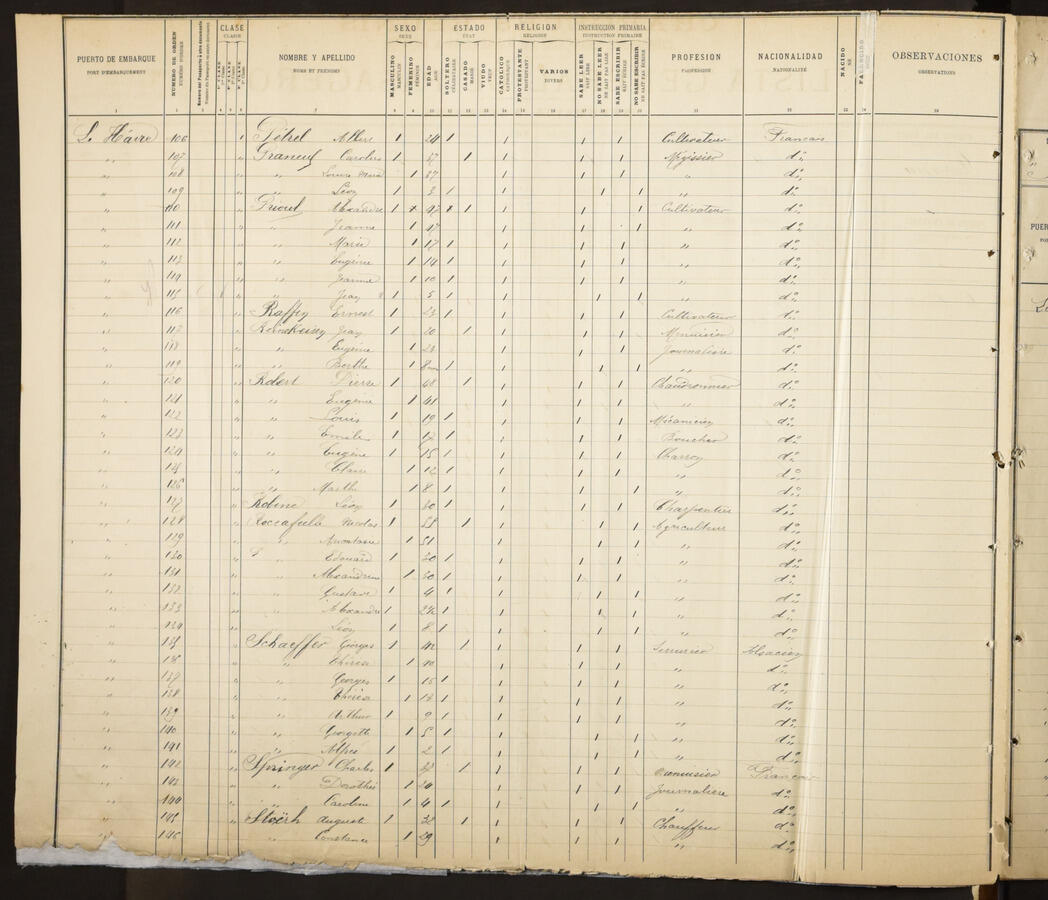 PUERTO DE EMBARQUE PORT D'EMBARQUEMENT
NUMERO DE ORDEN NUMÉRO D'ORDRE
CLASE CLASSE
NOMBRE Y APELLIDO NOMS ET PRÉNOMS
SEXO SEXE MASCULINO MASCULIN FEMENINO FÉMININ
EDAD AGE
ESTADO ÉTAT SOLTERO CÉLIBATAIRE CASADO MARIÉ VIUDO VEUF
RELIGION RELIGION CATÓLICO CATHOLIQUE PROTESTANTE PROTESTANT VARIOS DIVERS
INSTRUCCION PRIMARIA INSTRUCTION PRIMAIRE SABE LEER SAIT LIRE NO SABE LEER NE SAIT PAS LIRE SABE ESCRIBIR SAIT ÉCRIRE NO SABE ESCRIBIR NE SAIT PAS ÉCRIRE
PROFESION PROFESSION
NACIONALIDAD NATIONALITÉ
NACIDO NÉ
FALLECIDO
OBSERVACIONES OBSERVATIONS
Le Hâvre 106 1 Pétrel Albert 1 24 1 1 1 1 Cultivateur Francais
" 107 " Graneuf 1 37 1 1 1 1 Mégissier d°
" 108 " " Louise Maria 1 37 1 1 1 " d°
" 109 " " Léon 1 3 1 1 1 1 " d°
" 110 " Prioul Alexandre 1 47 1 1 1 1 Cultivateur d°
" 111 " " Jeanne 1 47 1 1 1 " d°
" 112 " " Marie 1 17 1 1 1 1 " d°
" 113 " " Eugénie 1 14 1 1 1 1 " d°
" 114 " " Jeanne 1 10 1 1 1 1 " d°
" 115 " " Jean 1 5 1 1 1 1 " d°
" 116 " Raffin Ernest 1 23 1 1 1 1 Cultivateur d°
" 117 " Jean 1 20 1 1 1 1 Menuisier d°
" 118 " " Eugénie 1 23 1 1 1 Journalière d°
" 119 " " Berthe 1 1 1 1 1 " d°
" 120 " Robert Pierre 1 48 1 1 1 1 Chaudronnier d°
" 121 " " Eugénie 1 41 1 1 1 " d°
" 122 " " Louis 1 19 1 1 1 1 Mécanicien d°
" 123 " " Emile 1 17 1 1 1 1 Boucher d°
" 124 " " Eugène 1 15 1 1 1 1 Charron d°
" 125 " " Claire 1 12 1 1 1 1 " d°
" 126 " " Marthe 1 8 1 1 1 1 " d°
" 127 " Robine Léon 1 30 1 1 1 1 Charpentier d°
" 128 " Nicolas 1 58 1 1 1 1 Agriculteur d°
" 129 " " 1 51 1 1 1 " d°
" 130 " " Edouard 1 30 1 1 1 1 " d°
" 131 " " Alexandrine 1 30 1 1 1 1 " d°
" 132 " " Gustave 1 4 1 1 1 1 " d°
" 133 " " Alexandre 1 1 1 1 1 " d°
" 134 " " Léon 1 8 1 1 1 1 " d°
" 135 " Schaeffer Georges 1 42 1 1 1 1 Serrurier Alsacien
" 136 " " Thérèse 1 40 1 1 1 " d°
" 137 " " Georges 1 15 1 1 1 1 " d°
" 138 " " Thérèse 1 13 1 1 1 1 " d°
" 139 " " Arthur 1 9 1 1 1 1 " d°
" 140 " " Georgette 1 5 1 1 1 1 " d°
" 141 " " Alfred 1 2 1 1 1 1 " d°
" 142 " Springer Charles 1 1 1 1 1 Menuisier Francais
" 143 " " Dorothée 1 1 1 1 Journalière d°
" 144 " " Caroline 1 4 1 1 1 1 " d°
" 145 " Auguste 1 32 1 1 1 1 Chauffeur d°
" 146 " Constance 1 29 1 1 1 " d°